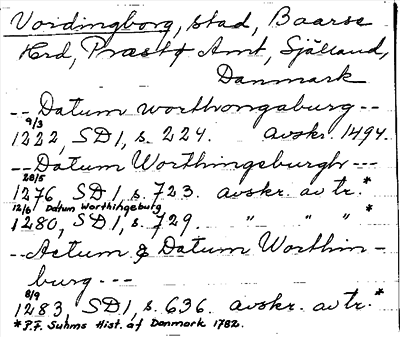 Vordingborg, stad, Baarse
Hrd, Præstø Amt, Själland,
Danmark
-- Datum worthongaburg --
9/3
1222, SD1, s. 224. avskr. 1494.
-- Datum Worthingeburgh ---
28/5
1276 SD1, s. 723. avskr. av tr.*
12/6 Datum Worthingeburg
1280, SD1, s. 729. " " " *
-- Actum & Datum Worthin-
burg ---
8/9
1283, SD1, s. 636. avskr. av tr.*
*P.F. Suhms Hist. af Danmark 1782.